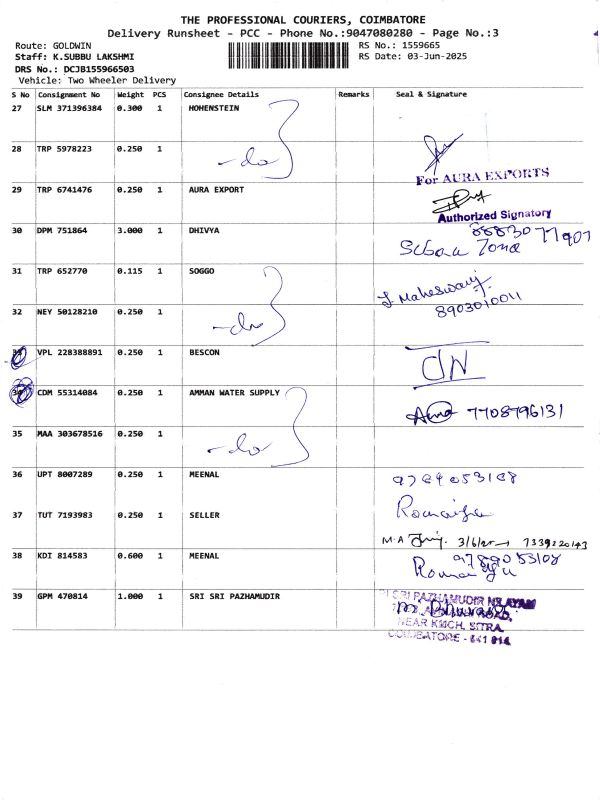 THE PROFESSIONAL COURIERS, COIMBATORE
Delivery Runsheet - PCC - Phone No.:9047080280 - Page No.:3
Route: GOLDWIN
Staff: K.SUBBU LAKSHMI
DRS No.: DCJB155966503
Vehicle: Two Wheeler Delivery
RS No.: 1559665
RS Date: 03-Jun-2025
S No Consignment No Weight PCS Consignee Details Remarks Seal & Signature
27 SLM 371396384 0.300 1 HOHENSTEIN
28 TRP 5978223 0.250 1 -do-
For AURA EXPORTS
29 TRP 6741476 0.250 1 AURA EXPORT
Authorized Signatory
30 DPM 751864 3.000 1 DHIVYA 8883077907
31 TRP 652770 0.115 1 SOGGO J Maheswary
8903010011
32 NEY 50128210 0.250 1 -do-
VPL 228388891 0.250 1 BESCON
34 CDM 55314084 0.250 1 AMMAN WATER SUPPLY 7708796131
35 MAA 303678516 0.250 1 -do-
36 UPT 8007289 0.250 1 MEENAL 9789053108
37 TUT 7193983 0.250 1 SELLER
M.A 3/6/25 7339220143
38 KDI 814583 0.600 1 MEENAL 9789053108
39 GPM 470814 1.000 1 SRI SRI PAZHAMUDIR
SRI PAZHAMUDIR NILAYAM
ROAD,
NEAR KMCH, SITRA
COIMBATORE - 641 014